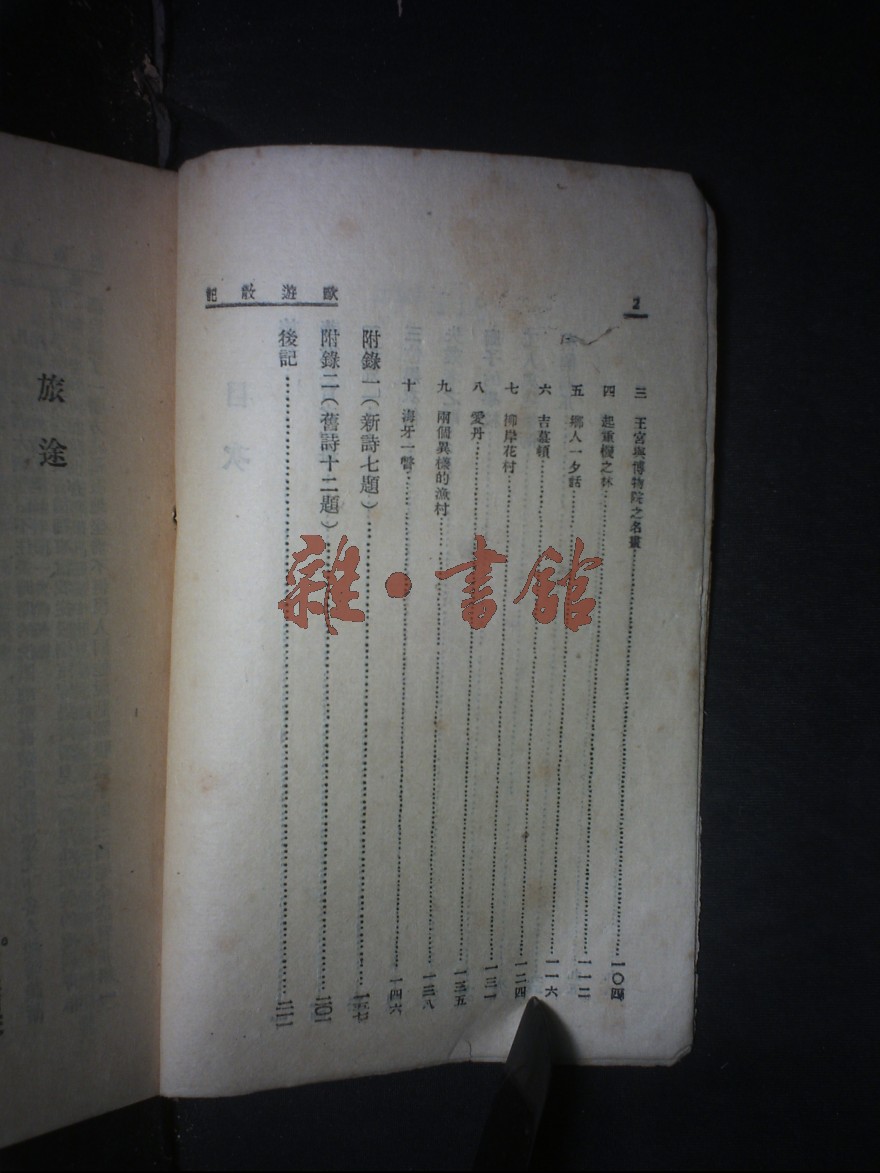 2
歐遊散記
三 王宮與博物院之名畫……一〇四
四 起重機之林……一一二
五 鄉人一夕話……一一六
六……一二四
七 柳岸花村……一三一
八 愛丹……一三五
九 兩個異樣的漁村……一三八
十 海牙一瞥……一四六
附錄一（新詩七題）……一五七
附錄二（舊詩十二題）……二〇一
後記……
旅途
雜·書館